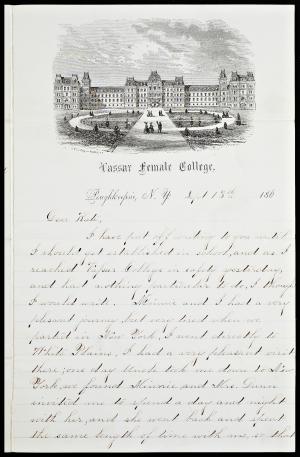 Vassar Female College.
Poughkeepsie, N. Y. Sept 18th 186
Dear Kate,
I have put off writing to you until
I should get established in school, and as I
reached Vassar College in safety yesterday,
and had nothing particular to do, I thought
I would write. Minnie and I had a very
pleasant journey but very tired when we
parted in New York, I went directly to
White Plains, I had a very pleasant visit
there; one day Uncle took me down to New
York, we found Minnie and Mrs. Dunn
invited me to spend a day and night
with her, and she went back and spent
the same length of time with me, so that